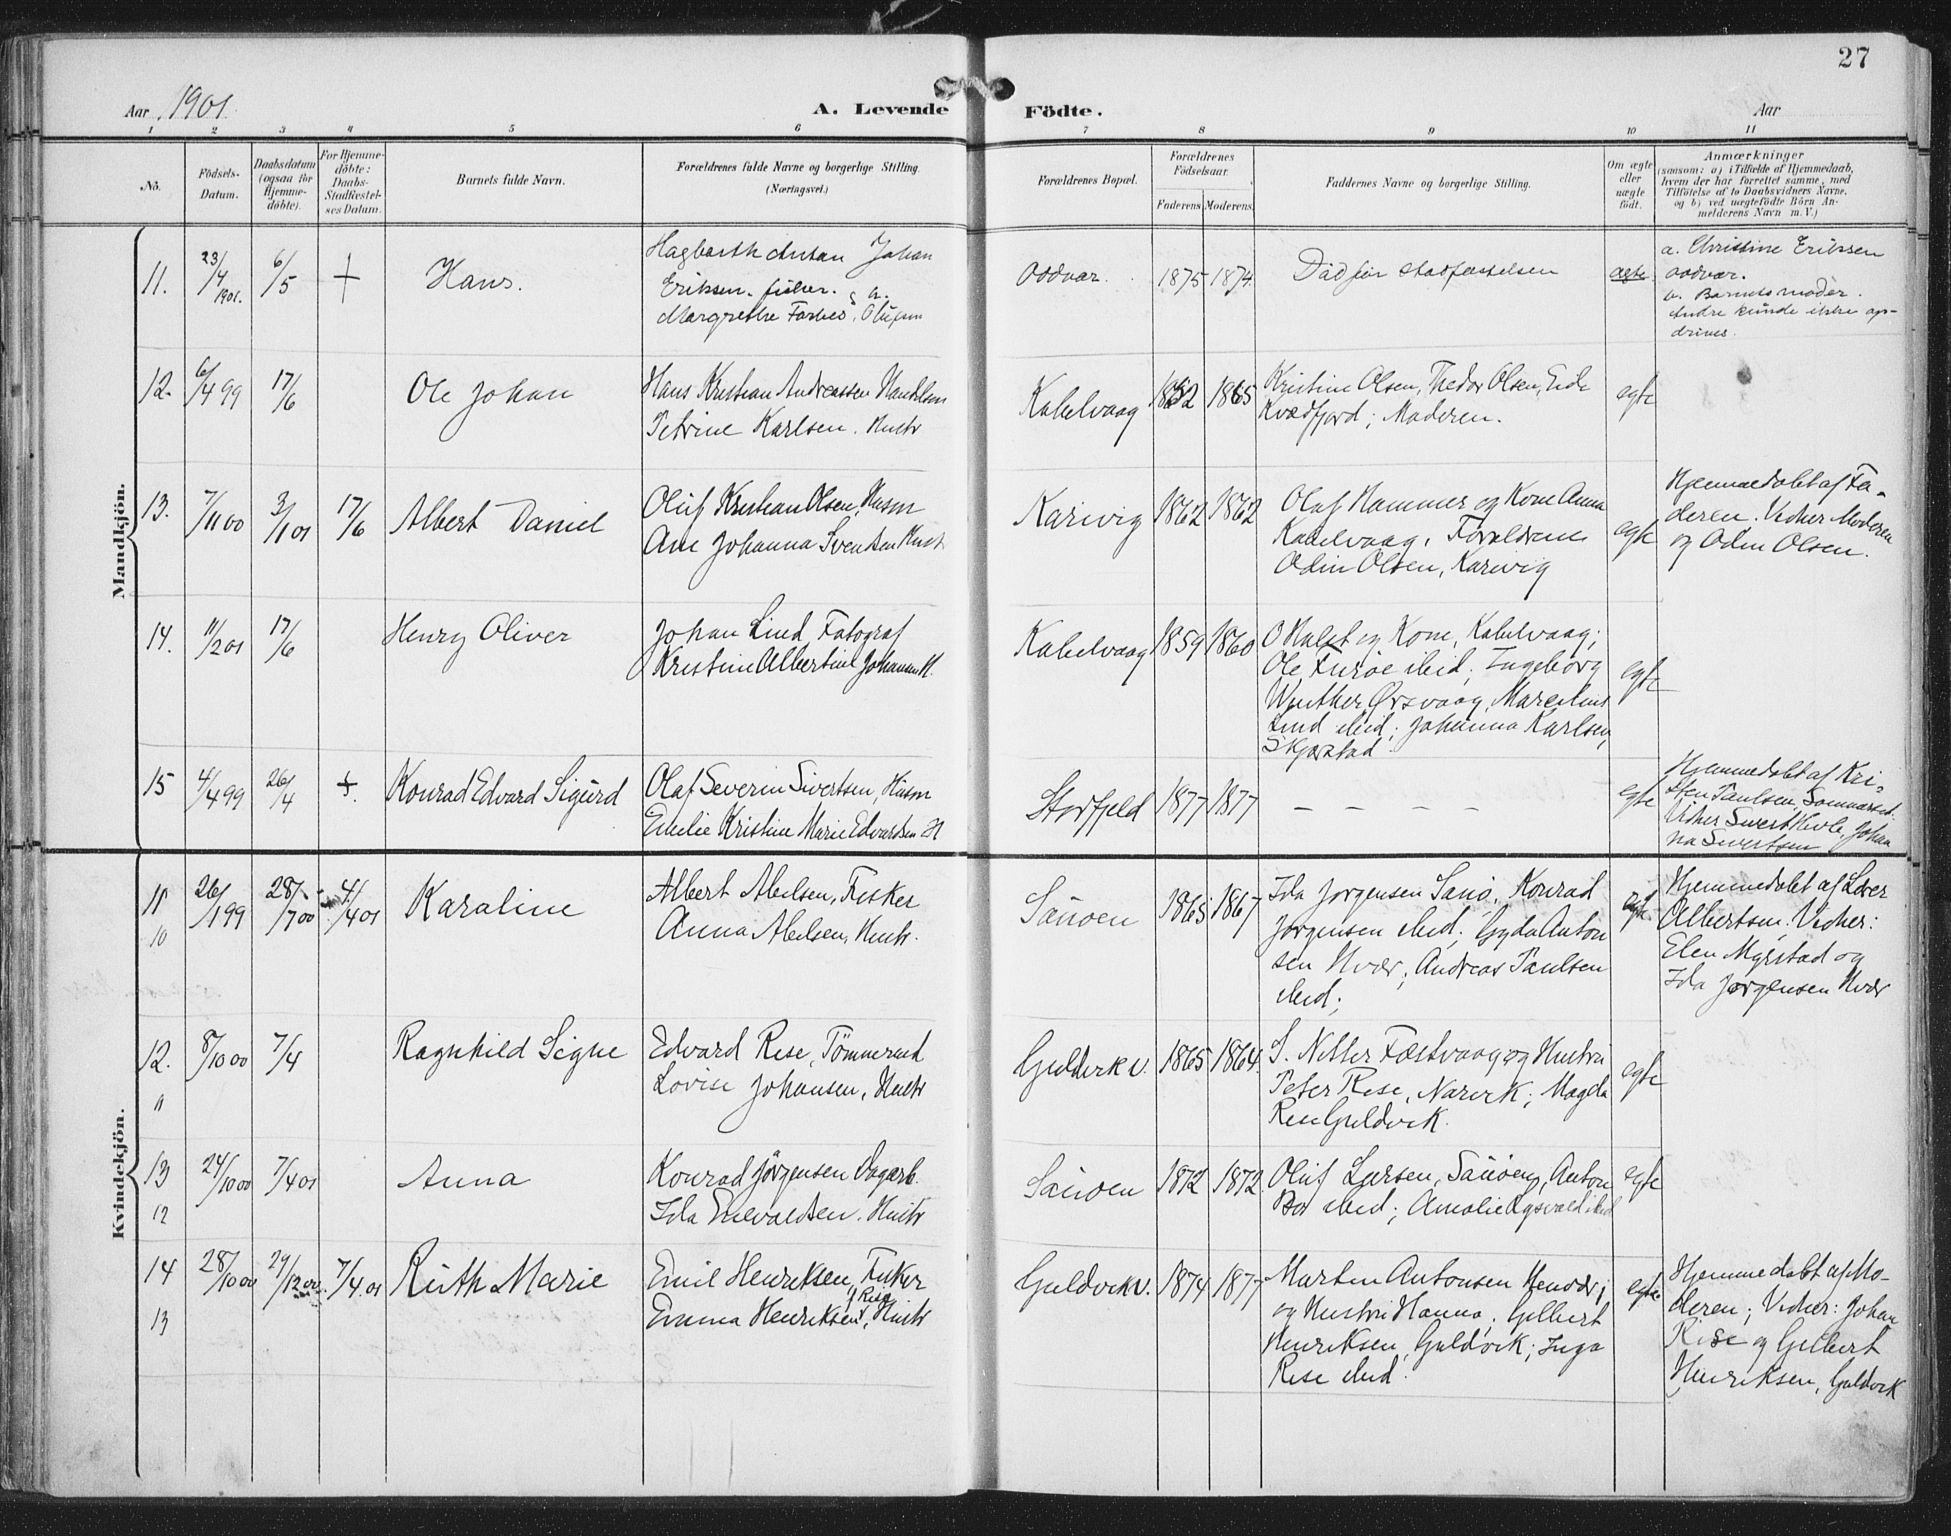 27
Aar 1901.
A. Levende Födte.
Aar
1 2 3 4 5 6 7 8 9 10 11
No.
Födsels-
Datum.
Daabsdatum
(ogsaa for
Hjemme-
döbte).
For Hjemme-
döbte:
Daabs-
Stadfæstel-
ses Datum.
Barnets fulde Navn.
Forældrenes fulde Navne og borgerlige Stilling.
(Næringsvei.)
Forældrenes Bopæl.
Forældrenes
Födselsaar.
Faderens Moderens.
Faddernes Navne og borgerlige Stilling.
Om ægte
eller
uægte
födt.
Anmærkninger
(saasom: a) i Tilfælde af Hjemmedaab,
hvem der har forrettet samme, med
Tilföielse af to Daabsvidners Navne.
og b) ved uægtefödte Börn An-
melderens Navn m. V.)
Mandkjön.
11. 23/4 1901. 6/5 + Hans.
Hagbarth Antan Johan
Eriksen. fisker. &
Margrethe
Oddvær. 1875 1874.
Död før stadfæstelsen
ægte
a. Christine Eriksen
Oddvær.
b. Barnets moder.
Andre kunde ikke op-
drives.
12. 6/4 99 17/6 Ole Johan
Hans Kristian Andreassen
Petrine Karlsen. Hustr
Kabelvaag 1852 1865
Kristine Olsen, Thedor Olsen, Eide
Kvædfjord; Moderen.
egte
13. 7/11 00 3/1 01 17/6 Albert Daniel
Oluf Kristian Olsen, Husm
Ane Johanna Svendsen Hust
Karivig 1862 1862
Olaf Hammer og Kone Anna
Kabelvaag, Forældrene
Odin Olsen, Karivig
egte
Hjemmedøbt af Fa-
deren. Vidner Moderen
og Odin Olsen.
14. 11/2 01 17/6 Henry Oliver
Johan Lind, Fotograf
Kristine Albertine Johannes H.
Kabelvaag 1859 1860
O Halst og Kone, Kabelvaag;
Ole Furøe ibid; Ingeborg
Winther Ørsvaag,
Lind ibid; Johanna Karlsen,
Skjørstad
egte
15 4/4 99 26/4 +. Konrad Edvard Sigurd
Olaf Severin Sivertsen, Husm
Emelie Kristine Marie Edvardsen H
Storfjeld 1877 1877 – – – –
egte
Hjemmedøbt af Kri-
sten Paulsen, Sommerset.
Vidner Sivert Hvole, Johan
na Sivertsen
Kvindekjön.
11 10 26/1 99 28/7 00 4/4 01 Karoline
Albert Abelsen, Fisker
Anna Abelsen, Hustr.
Sauøen 1865 1867
Ida Jørgensen Sauø, Konrad
Jørgensen ibid; Gyda Anton
sen Hvær; Andreas Paulsen
ibid;
egte
Hjemmedøbt af
Albertsen. Vidner:
Elen Myrstad og
Ida Jørgensen Hvær
12. 11 8/10 00 7/4 Ragnhild Signe
Edvard Rise, Tömmermd
Lovise Johansen, Hustr
Guldvik v. 1865 1864.
S. Næstvaag og Hustru
Peter Rise, Narvik; Magda
Rise Guldvik.
egte
13 12 24/10 00 7/4 01 Anna
Konrad Jörgensen Dagarb.
Ida Enevaldsen. Hustr
Sauøen 1872 1872.
Oluf Larsen, Sauøen, Anton
Bø ibid; Amalie
egte
14 13 28/10 00 29/12 00. 7/4.01 Ruth Marie
Emil Henriksen, Fisker
Emma Henriksen f Rise, Hustr
Guldvik v. 1874 1877
Marten Antonsen Henvær;
og Hustru Hanna; Gilbert
Henriksen, Guldvik; Inga
Rise ibid.
egte
Hjemmedøbt af Mo-
deren; Vidner: Johan
Rise og Gilbert
Henriksen, Guldvik